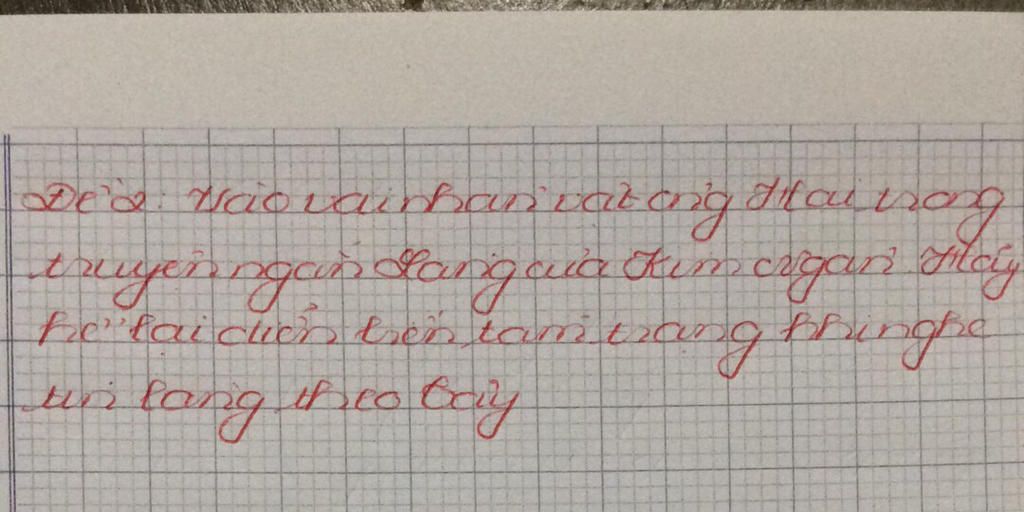 Đề 2: Vào vai nhân vật ông Hai trong
truyện ngắn Làng của Kim Lân. Hãy
kể lại diễn biến tâm trạng khi nghe
tin làng theo Tây